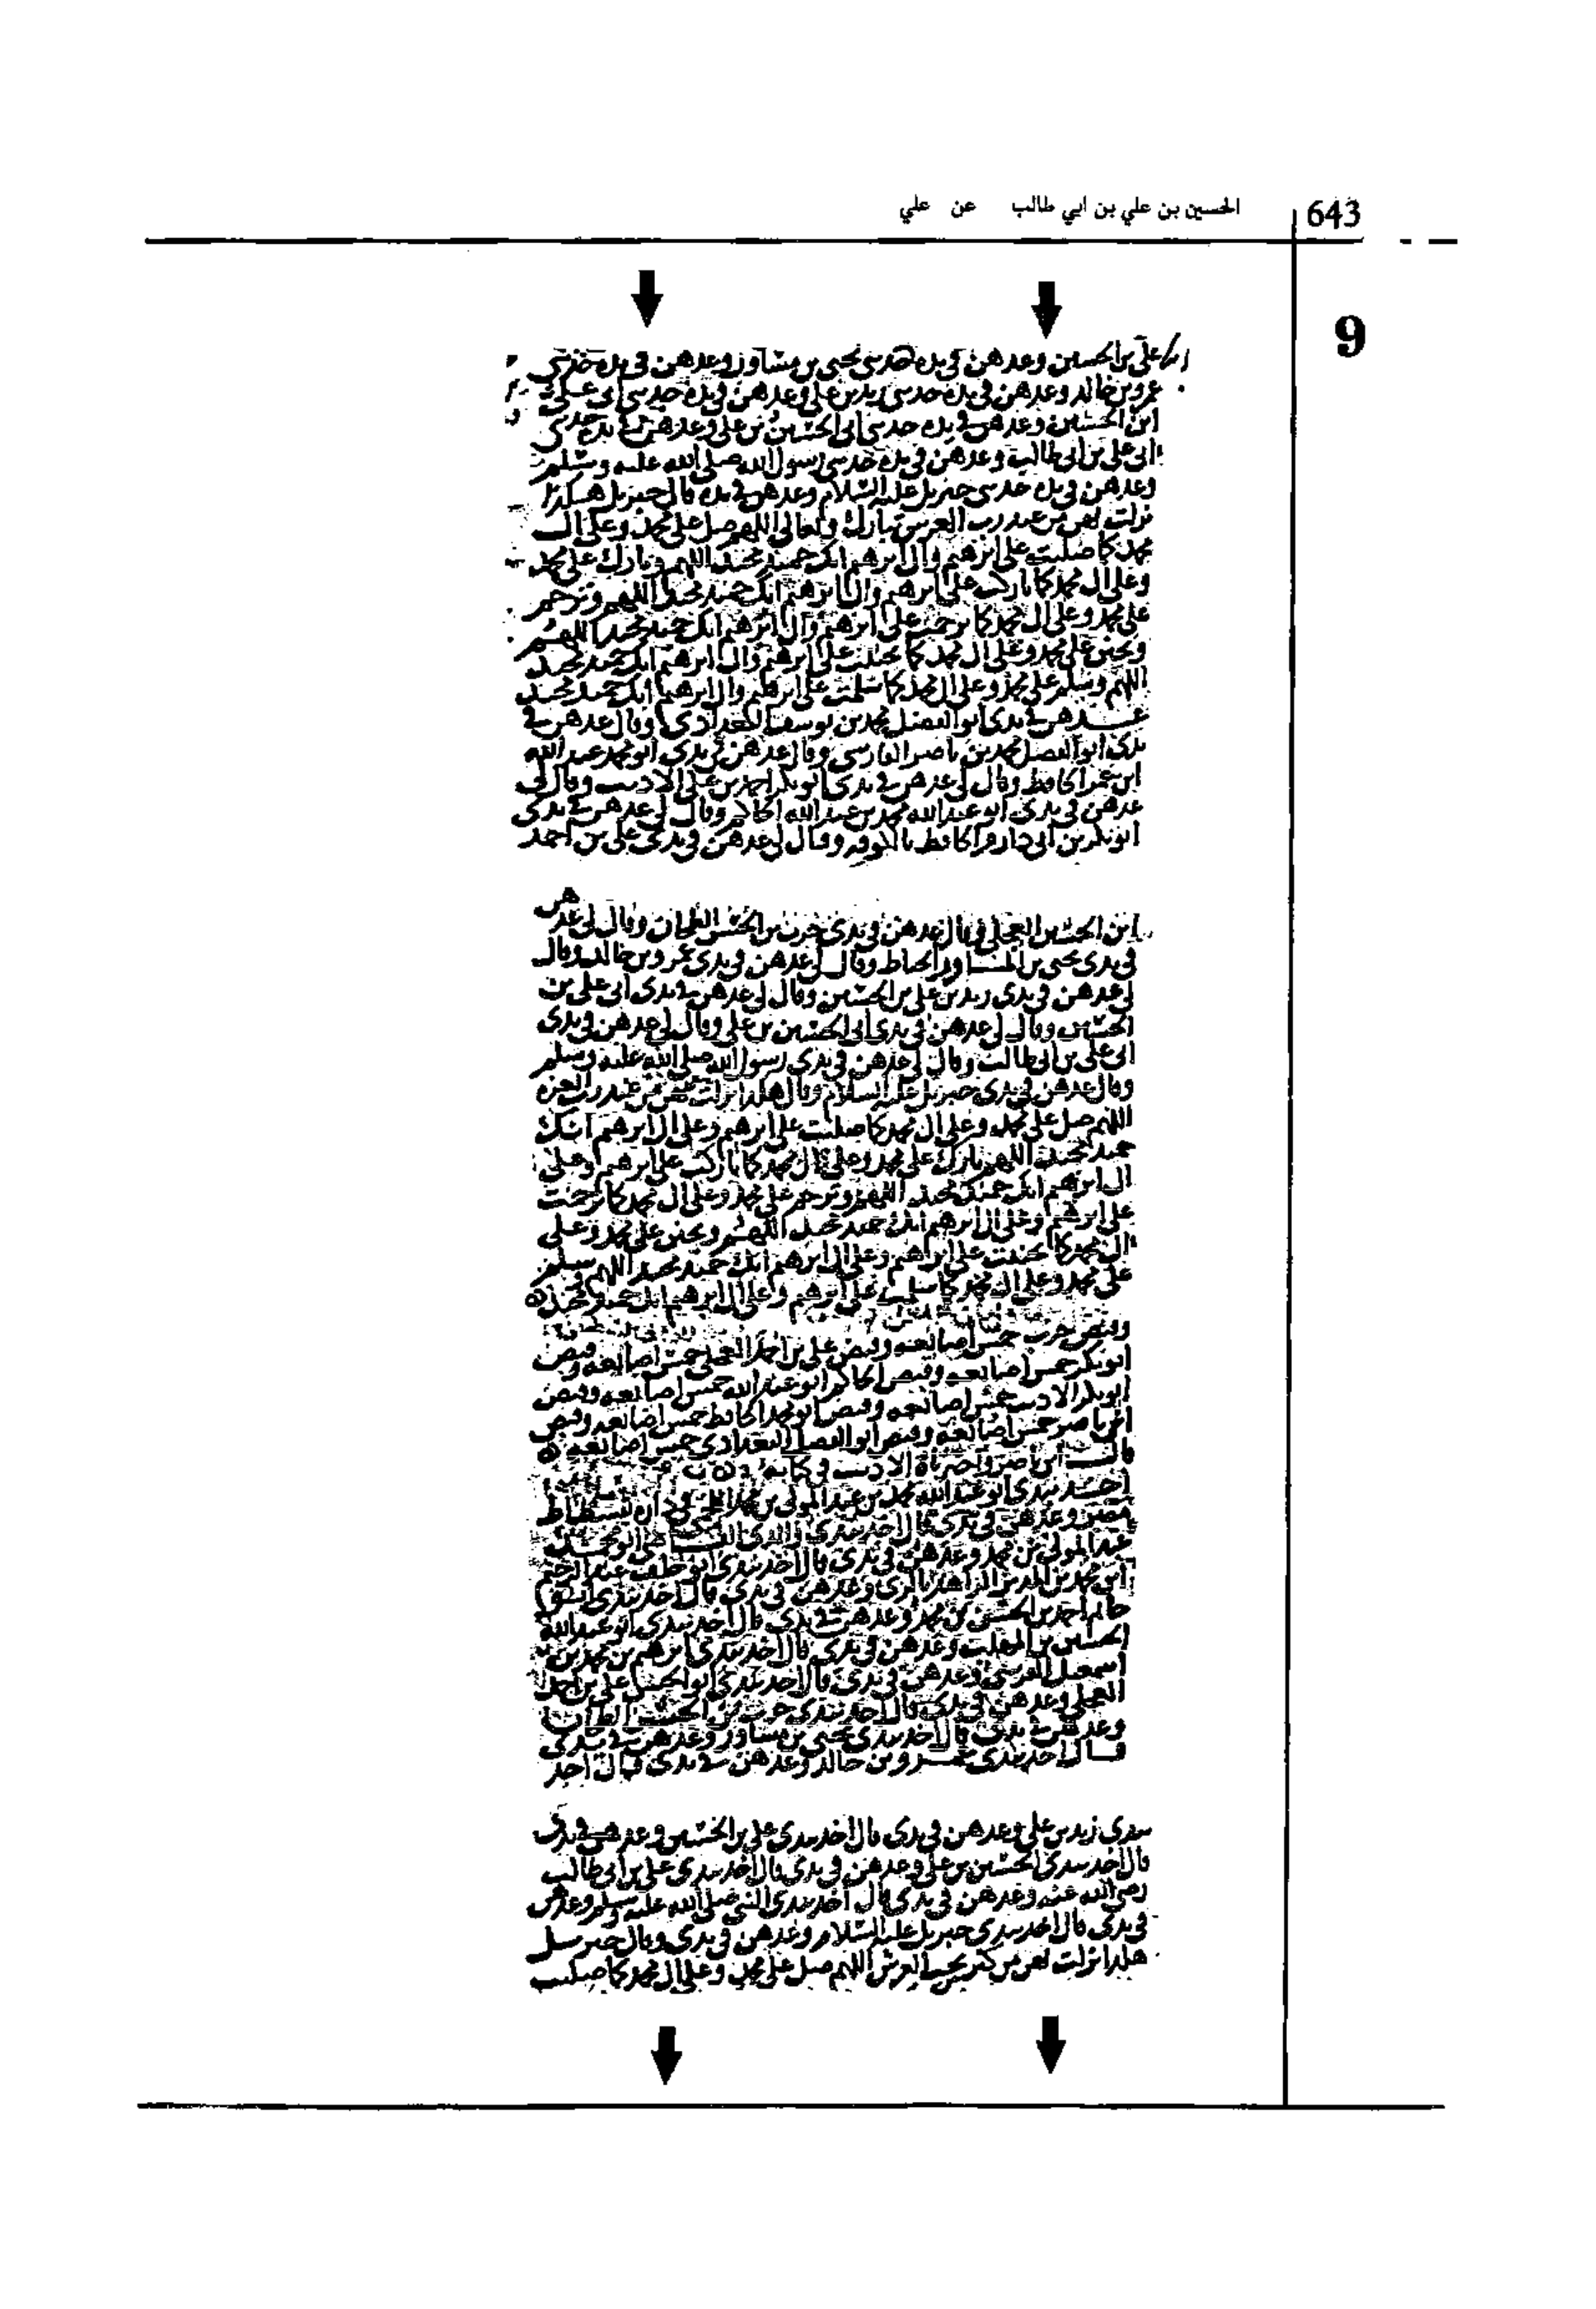 643
الحسين بن علي بن ابي طالب عن علي
9
علي بن الحسين وعدهن في يده حدثني يحيى بن مساور وعدهن في يده حدثني
عمرو بن خالد وعدهن في يده حدثني زيد بن علي وعدهن في يده حدثني ابي علي
ابن الحسين وعدهن في يده حدثني ابي الحسين بن علي وعدهن في يده حدثني
ابي علي بن ابي طالب وعدهن في يده حدثني رسول الله صلى الله عليه وسلم
وعدهن في يده حدثني جبريل عليه السلام وعدهن في يده قال جبريل هكذا
نزلت بهن من عند رب العرش تبارك وتعالى اللهم صل على محمد وعلى ال
محمد كما صليت على ابرهيم وال ابرهيم انك حميد مجيد اللهم وبارك على محمد
وعلى ال محمد كما باركت على ابرهيم وال ابرهيم انك حميد مجيد اللهم وترحم
على محمد وعلى ال محمد كما ترحمت على ابرهيم وال ابرهيم انك حميد مجيد اللهم
وتحنن على محمد وعلى ال محمد كما تحننت على ابرهيم وال ابرهيم انك حميد مجيد
اللهم وسلم على محمد وعلى ال محمد كما سلمت على ابرهيم وال ابرهيم انك حميد مجيد
عدهن في يدي ابو الفضل محمد بن يوسف البغدادي وقال عدهن في
يدي ابو الفضل محمد بن ناصر الفارسي وقال عدهن في يدي ابو محمد عبد الله
ابن عمر الحافظ وقال لي عدهن في يدي ابو بكر احمد بن علي الاديب وقال لي
عدهن في يدي ابو عبد الله محمد بن عبد الله الحاكم وقال لي عدهن في يدي
ابو بكر بن ابي دارم الحافظ بالكوفه وقال لي عدهن في يدي علي بن احمد
ابن الحسين العجلي وقال عدهن في يدي حرب بن الحسن الطحان وقال لي عدهن
في يدي يحيى بن المساور الحناط وقال لي عدهن في يدي عمرو بن خالد وقال
لي عدهن في يدي زيد بن علي بن الحسين وقال لي عدهن في يدي ابي علي بن
الحسين وقال لي عدهن في يدي ابي الحسين بن علي وقال لي عدهن في يدي
ابي علي بن ابي طالب وقال لي عدهن في يدي رسول الله صلى الله عليه وسلم
وقال عدهن في يدي جبريل عليه السلام وقال هكذا نزلت بهن من عند رب العزه
اللهم صل على محمد وعلى ال محمد كما صليت على ابرهيم وعلى ال ابرهيم انك
حميد مجيد اللهم بارك على محمد وعلى ال محمد كما باركت على ابرهيم وعلى
ال ابرهيم انك حميد مجيد اللهم وترحم على محمد وعلى ال محمد كما ترحمت
على ابرهيم وعلى ال ابرهيم انك حميد مجيد اللهم وتحنن على محمد وعلى
ال محمد كما تحننت على ابراهيم وعلى ال ابرهيم انك حميد مجيد اللهم وسلم
على محمد وعلى ال محمد كما سلمت على ابرهيم وعلى ال ابرهيم انك حميد مجيد
وقبض حرب خمس اصابعه وقبض علي بن احمد العجلي خمس اصابعه وقبض
ابو بكر خمس اصابعه وقبض الحاكم ابو عبد الله خمس اصابعه وقبض
ابو بكر الاديب خمس اصابعه وقبض ابو محمد الحافظ خمس اصابعه وقبض
ابن ناصر خمس اصابعه وقبض ابو الفضل البغدادي خمس اصابعه
قال ابن ناصر واخبرناه الاديب في كتابه
اخذ بيدي ابو عبد الله محمد بن عبد المولى بن محمد في داره بفسطاط
مصر وعدهن في يدي قال اخذ بيدي والدي
عبد المولى بن محمد وعدهن في يدي قال اخذ بيدي ابو خلف عبد الرحيم
ابن محمد بالري وعدهن في يدي قال اخذ بيدي
احمد بن الحسين بن محمد وعدهن في يدي قال اخذ بيدي ابو عبد الله
الحسين بن المهلب وعدهن في يدي قال اخذ بيدي ابرهيم بن محمد بن
اسمعيل وعدهن في يدي قال اخذ بيدي ابو الحسن علي بن احمد
العجلي وعدهن في يدي قال اخذ بيدي حرب بن الحسن الطحان
وعدهن في يدي قال اخذ بيدي يحيى بن مساور وعدهن في يدي
قال اخذ بيدي عمرو بن خالد وعدهن في يدي قال اخذ
بيدي زيد بن علي وعدهن في يدي قال اخذ بيدي علي بن الحسين وعدهن في يدي
قال اخذ بيدي الحسين بن علي وعدهن في يدي قال اخذ بيدي علي بن ابي طالب
رضي الله عنه وعدهن في يدي قال اخذ بيدي النبي صلى الله عليه وسلم وعدهن
في يدي قال اخذ بيدي جبريل عليه السلام وعدهن في يدي وقال جبريل
هكذا نزلت بهن من العرش اللهم صل على محمد وعلى ال محمد كما صليت